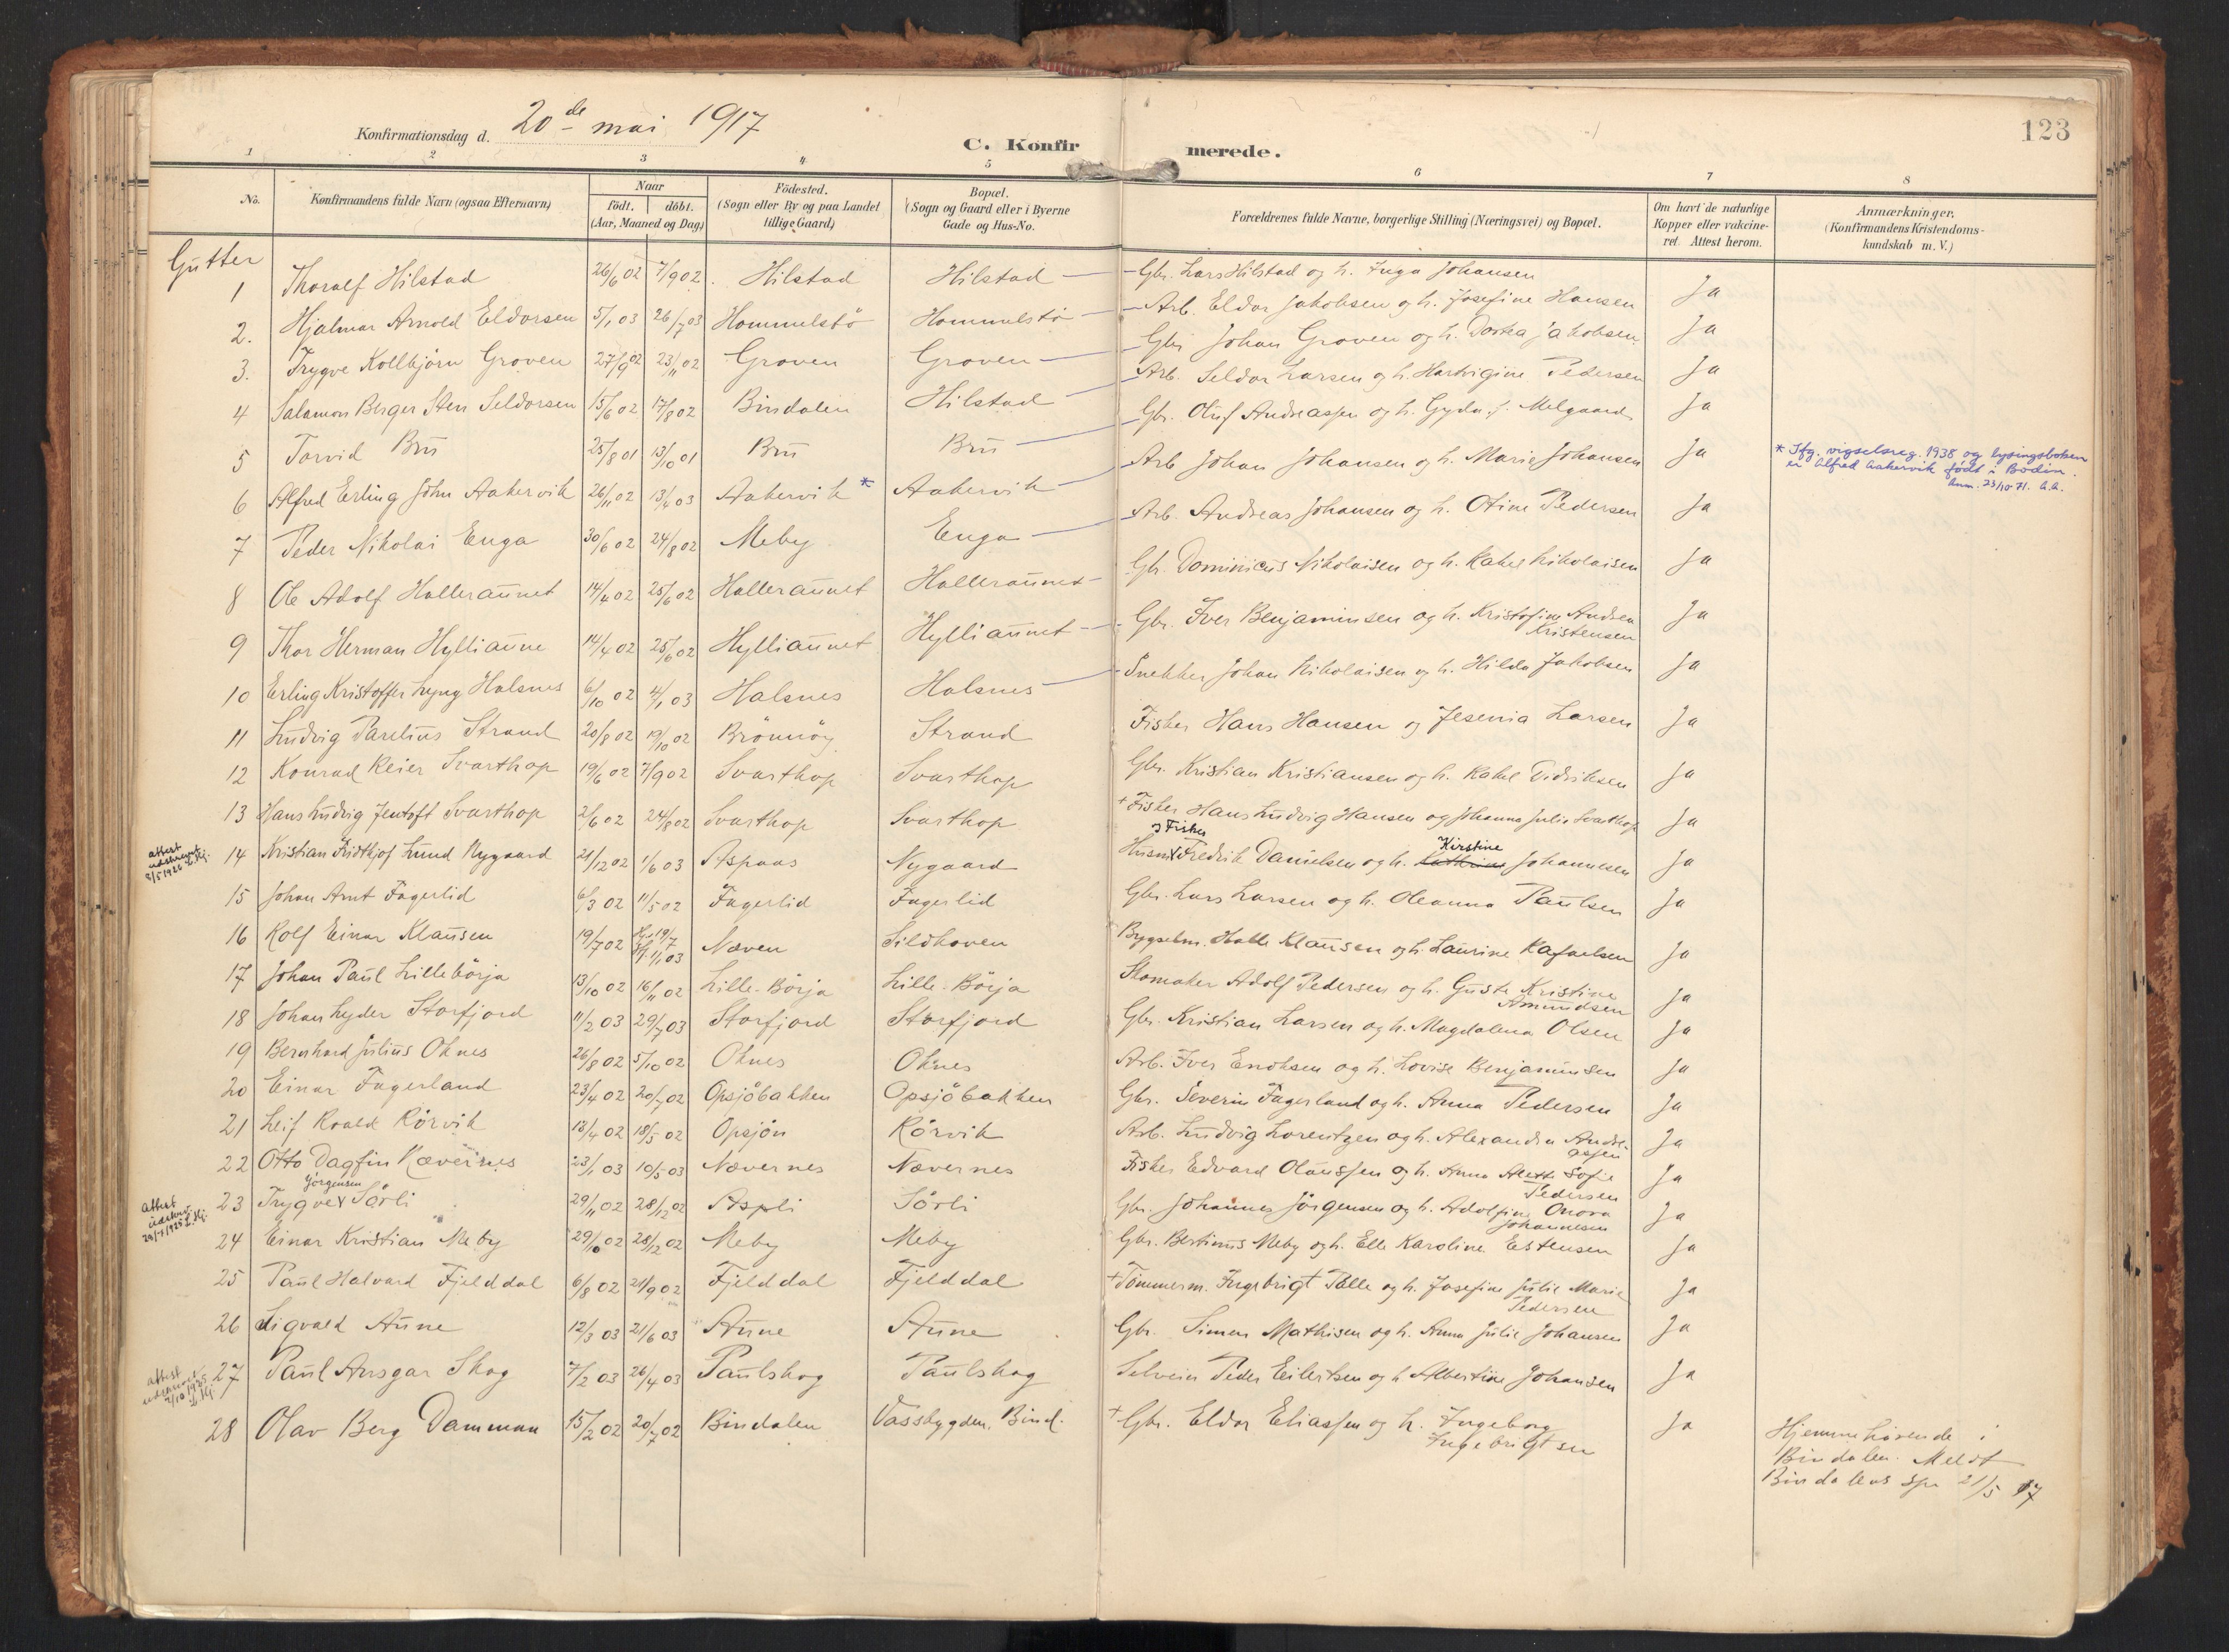 Konfirmationsdag d. 20de mai 1917
C. Konfirmerede.
123
1 2 3 4 5 6 7 8
No. Konfirmandens fulde Navn (ogsaa Efternavn) Naar født. døbt. (Aar, Maaned og Dag) Födested. (Sogn eller By og paa Landet tillige Gaard) Bopæl. (Sogn og Gaard eller i Byerne Gade og Hus-No. Forældrenes fulde Navne, borgerlige Stilling (Næringsvei) og Bopæl. Om havt de naturlige Kopper eller vakcineret. Attest herom. Anmærkninger. (Konfirmandens Kristendomskundskab m. V.)
Gutter
1 Thoralf Hilstad 26/6 02 7/9 02 Hilstad Hilstad Gbr. Lars Hilstad og h. Inga Johansen Ja
2. Hjalmar Arnold Eldorsen 5/1 03 26/7 03 Hommelstö Hommelstö Arb. Eldor Jakobsen og h. Josefine Hansen Ja
3. Trygve Kollbjörn Groven 27/9 02 23/11 02 Groven Groven Gbr. Johan Groven og h. Dortea Jakobsen Ja
4 Salamon Berger Sten Seldorsen 15/6 02 17/8 02 Bindalen Hilstad Arb. Seldor Larsen og h. Hartvigine Pedersen Ja
5 Torvid Brŭ 25/8 01 13/10 01 Brŭ Brŭ Gbr. Oluf Andreassen og h. Gyda f. Melgaard Ja
6 Alfred Erling John Aakervik 26/11 02 13/4 03 Aakervik * Aakervik Arb Johan Johansen og h. Marie Johansen Ja
* Ifg. vigselsreg. 1938 og lysingsboken
er Alfred Aakervik født i Bodin.
Ann. 23/10-71. A.A.
7 Peder Nikolai Enga 30/6 02 24/8 02 Meby Enga Arb. Andreas Johansen og h. Otine Pedersen Ja
8 Ole Adolf Halleraŭnet 14/4 02 25/6 02 Halleraŭnet Halleraŭnet Gbr. Dominicŭs Nikolaisen og h. Rakel Nikolaisen Ja
9 Thor Herman Hylliaŭne 14/4 02 25/6 02 Hylliaŭnet Hylliaŭnet Gbr. Iver Benjaminsen og h. Kristofine Andrea Kristensen Ja
10 Erling Kristoffer Lyng Halsnes 6/10 02 4/1 03 Halsnes Halsnes Snekker Johan Nikolaisen og h. Hilda Jakobsen Ja
11 Lŭdvig Pareliŭs Strand 20/8 02 19/10 02 Brönnöy Strand Fisker Hans Hansen og Jesenia Larsen Ja
12 Konrad Reier Svarthop 19/6 02 7/9 02 Svarthop Svarthop Gbr. Kristian Kristiansen og h. Rakel Didriksen Ja
13 Hans Lŭdvig Jentoft Svarthop 2/6 02 24/8 02 Svarthop Svarthop + Fisker Hans Lŭdvig Hansen og Johanna Julie Svarthop Ja
attest udskrevet 8/5 1922 L.Hj. 14 Kristian Fridthjof Lund Nygaard 21/12 02 1/6 03 Aspaas Nygaard Husm. og Fisker Fredrik Danielsen og h. Kirstine Johannesen Ja
15 Johan Arnt Fagerlid 6/3 02 11/5 02 Fagerlid Fagerlid Gbr. Lars Larsen og h. Oleanna Paŭlsen Ja
16 Rolf Einar Klaŭsen 19/7 02 Hj. 19/7 Kj. 1/1 03 Næven Sildhoven Bygselm. Halle Klaŭsen og h. Laŭrine Rafaelsen Ja
17 Johan Paŭl Lillebörja 13/10 02 16/11 02 Lille-Börja Lille-Börja Skomaker Adolf Pedersen og h. Gŭsta Kristine Amŭndsen Ja
18 Johan Lyder Storfjord 11/2 03 29/7 03 Storfjord Storfjord Gbr. Kristian Larsen og h. Magdalena Olsen Ja
19 Bernhard Jŭliŭs Oknes 26/8 02 5/10 02 Oknes Oknes Arb. Iver Enoksen og h. Lovise Benjaminsen Ja
20 Einar Fagerland 23/4 02 20/7 02 Opsjöbakken Opsjöbakken Gbr. Severin Fagerland og h. Anna Pedersen Ja
21 Leif Roald Rörvik 13/4 02 18/5 02 Opsjön Rörvik Arb. Lŭdvig Lorentzen og h. Alexandra Andreassen Ja
22 Otto Dagfin Nævernes 23/1 03 10/5 03 Nævernes Nævernes Fisker Edvard Olaŭssen og h. Anna Aletta Sofie Pedersen Ja
attest udskrev. 29/7 1925 L.Hj. 23 Trygve Jörgensen Sörli 29/11 02 28/12 02 Aspli Sörli Gbr. Johannes Jörgensen og h. Adolfine Onora Johannesen Ja
24 Einar Kristian Meby 29/10 02 28/12 02 Meby Meby Gbr. Bertinŭs Meby og h. Elle Karoline Estensen Ja
25 Paŭl Halvard Fjelddal 6/8 02 21/9 02 Fjelddal Fjelddal + Tömmerm. Ingebrigt Palle og h. Josefine Julie Marie Pedersen Ja
26 Sigvald Aŭne 12/3 03 21/6 03 Aŭne Aŭne Gbr. Simen Mathisen og h. Anna Julie Johansen Ja
attest udskrevet 2/10 1925 L.Hj. 27 Paŭl Ansgar Skog 7/2 03 26/4 03 Paŭlskog Paŭlskog Selveier Peder Eilertsen og h Albertine Johansen Ja
28 Olav Berg Damman 15/2 02 20/7 02 Bindalen Vassbygden, Bind. + Gbr. Eldor Eliassen og h. Ingeborg Ingebrigtsen Ja
Hjemmehörende i
Bindalen. Meldt
Bindalens spr 21/5 17